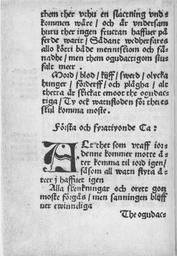 them ther vthu en slächtning vnd s
kommen wäre / och är vndersam
huru ther ingen fructan haffuer på
ferde warit / Sådant wedherfares
allo kötti både menniskiom och så-
nadhe / men them ogudactigom siu
falt mer.
Mord / blod / kijff / swerd / olycka
hunger / förderff / och plågha / al-
theta är skickat emoot the ogudacs
tiga / Ty ock watusloden för theres
skul komma moste.
Första och fyrationde Ca:
Alt thet som vtaff iors
denne kommer motte å ter
komma til iord igen /
såsom all watn flyta å-
ter j haffuet igen
Alla skenckningar och orett gotz
moste förgås / men sanningen bliff
uer ewinnerliga
The ogudacs